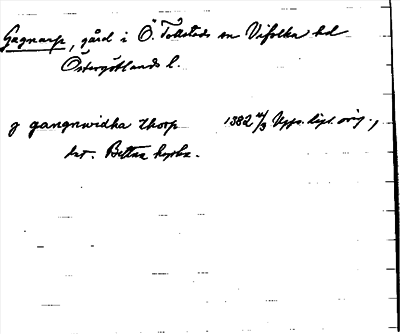 Gagnarp, gård i Ö. Tollstads sn Vifolka hd
Östergötlands l.
j gangnwidha thorp 1382 Upps. dipl. orig.,
dat. Bettna kyrka.